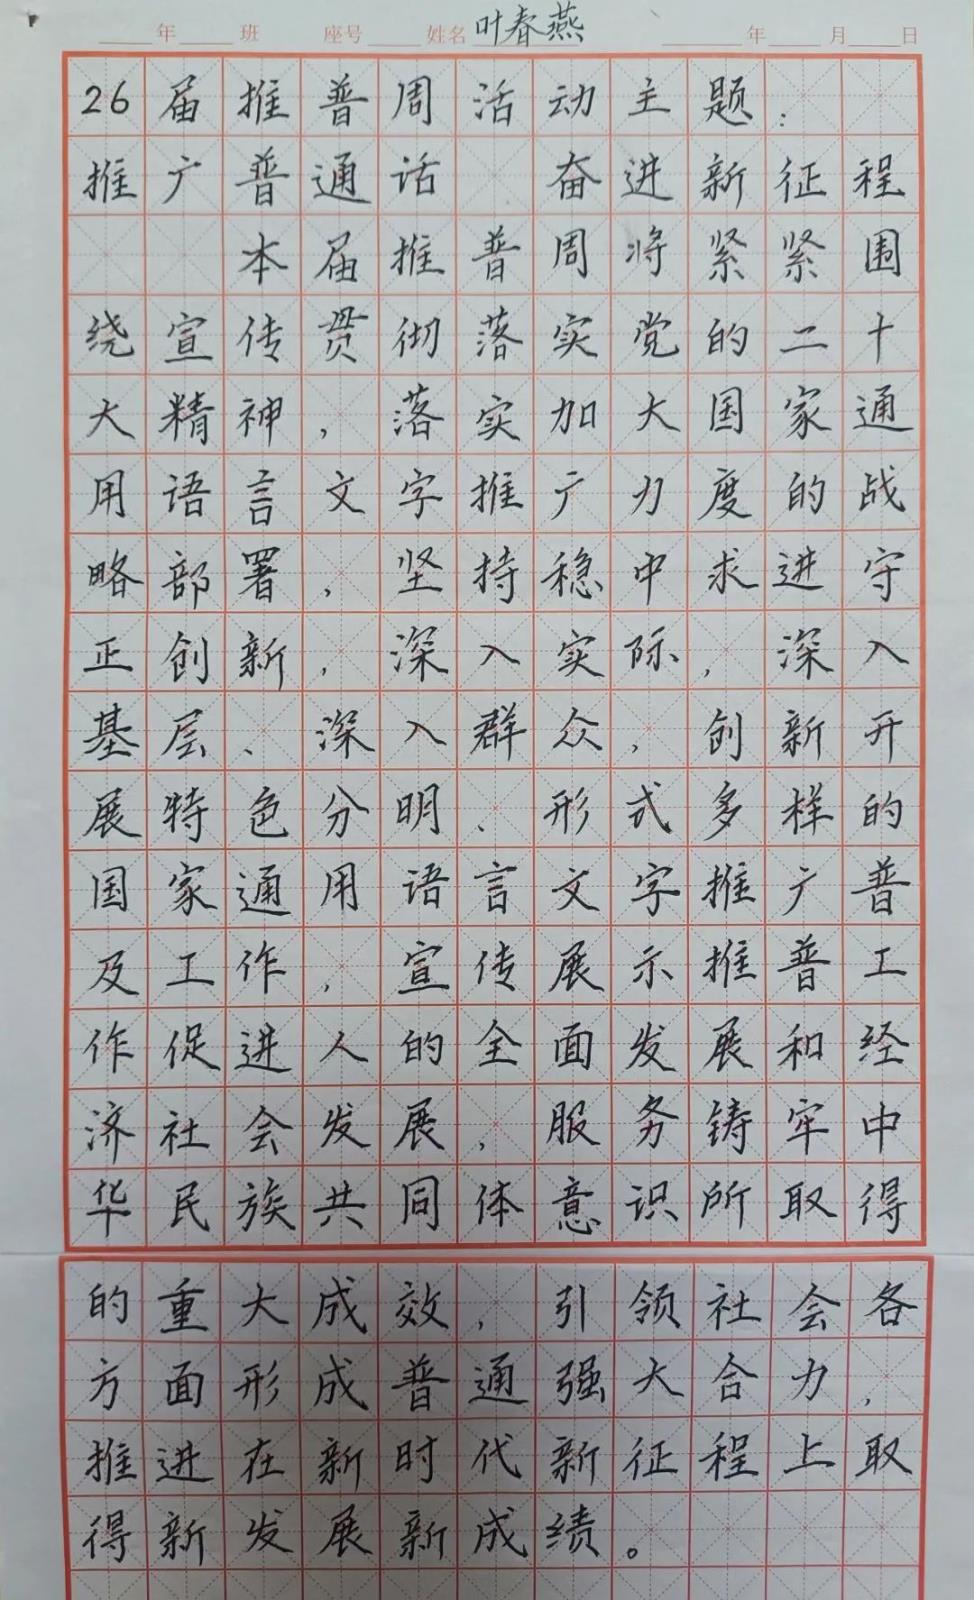 ____年____班 座号____姓名 叶春燕 ____年____月____日
26届推普周活动主题：
推广普通话 奋进新征程
本届推普周将紧紧围
绕宣传贯彻落实党的二十
大精神，落实加大国家通
用语言文字推广力度的战
略部署，坚持稳中求进守
正创新，深入实际，深入
基层、深入群众，创新开
展特色分明、形式多样的
国家通用语言文字推广普
及工作，宣传展示推普工
作促进人的全面发展和经
济社会发展，服务铸牢中
华民族共同体意识所取得
的重大成效，引领社会各
方面形成普通强大合力，
推进在新时代新征程上取
得新发展新成绩。